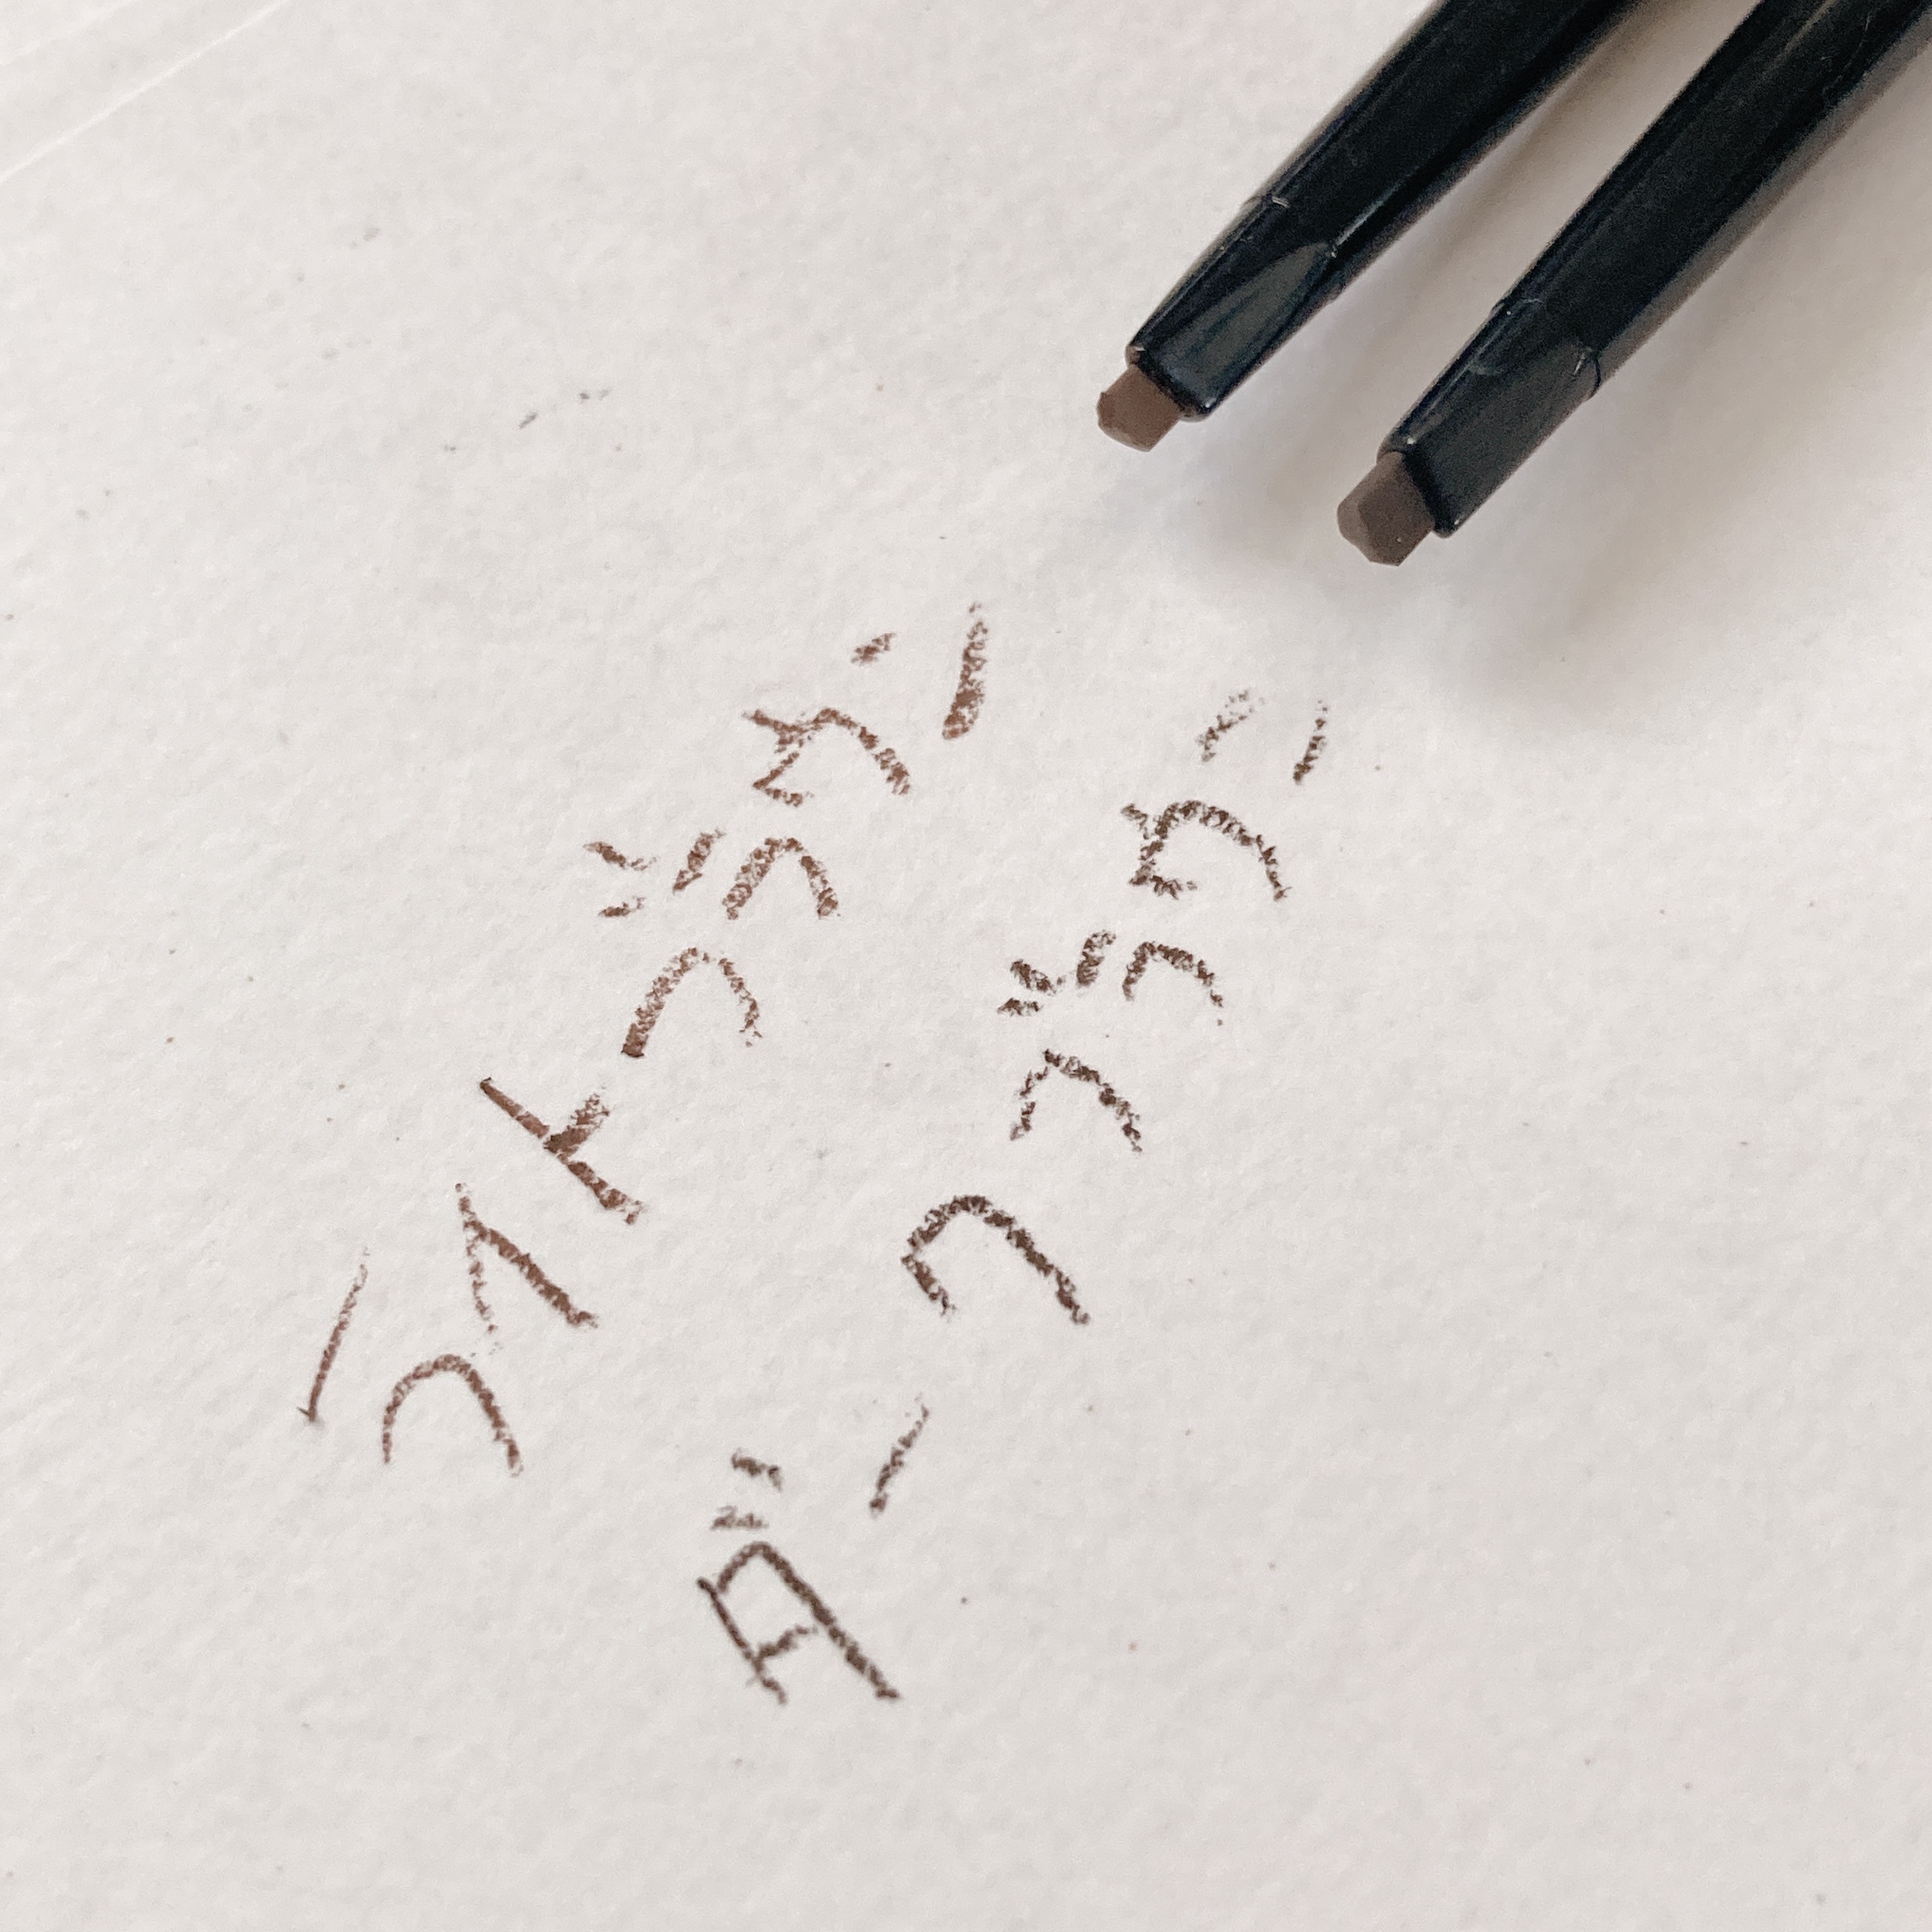 ライトブラウン
ダークブラウン